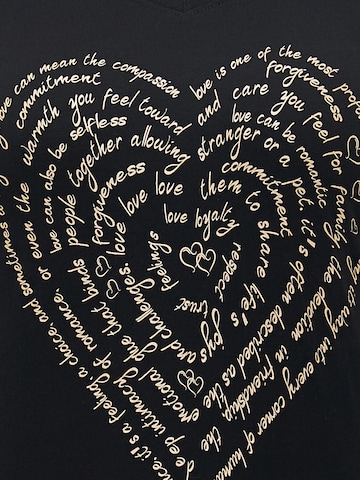 love can mean the compassion
love is one of the most
commitment
forgiveness
warmth you feel toward
and care you feel for
can also be selfless
stranger or a pet. it's often described as the
love can be romantic
and sometimes a
or even the
people together allowing
family the devotion in friendship the
forgiveness
commitment
love love love them to share life's
joys and challenges
love loyalty
feelings
respect
trust
emotional glue that binds
deep intimacy of romance,
it's a feeling a choice,
you into every corner of human